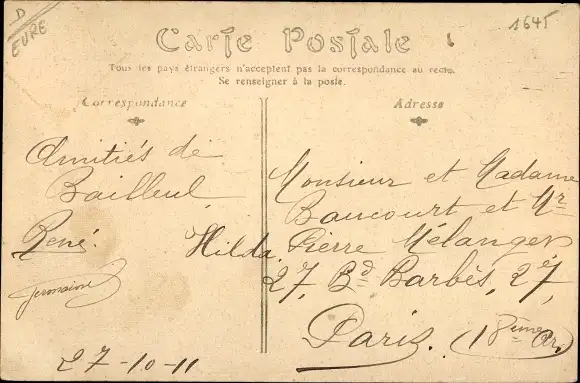 D
EURE
1645
Carte Postale
Tous les pays étrangers n'acceptent pas la correspondance au recto.
Se renseigner à la poste.
Correspondance
Amitiés de
Bailleul,
René. Hilda
Germaine
27-10-11
Adresse
Monsieur et Madame
Baucourt et Mr
Pierre Mélanger
27, Bd Barbès, 27,
Paris. (18ème Ar.)